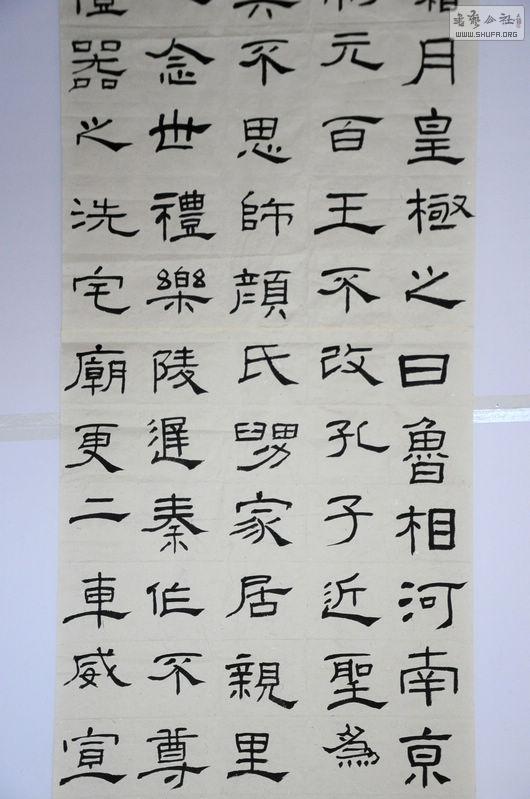 月皇極之日魯相河南京
元百王不改孔子近聖為
不思師顏氏舅家居親里
念世禮樂陵遲秦作不尊
器之洗宅廟更二車威宣
書藝公社
WWW.SHUFA.ORG